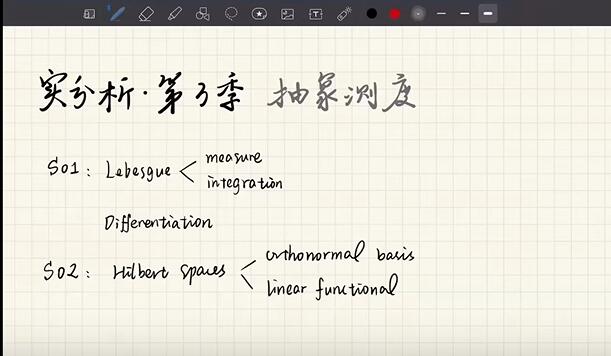 实分析·第3季 抽象测度
S01: Lebesgue < measure
integration
Differentiation
S02: Hilbert spaces < orthonormal basis
linear functional